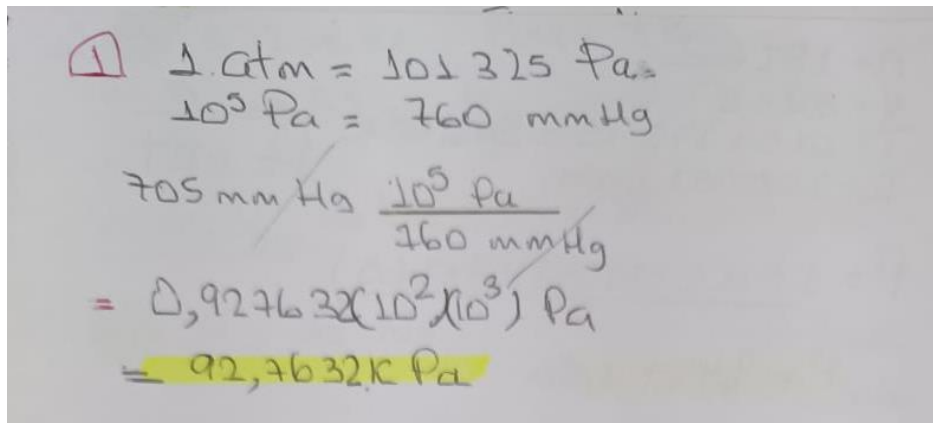 1 1 atm = 101 325 Pa.
10⁵ Pa = 760 mmHg
705 mm Hg 10⁵ Pa
760 mmHg
= 0,927632(10²)(10³) Pa
= 92,7632K Pa